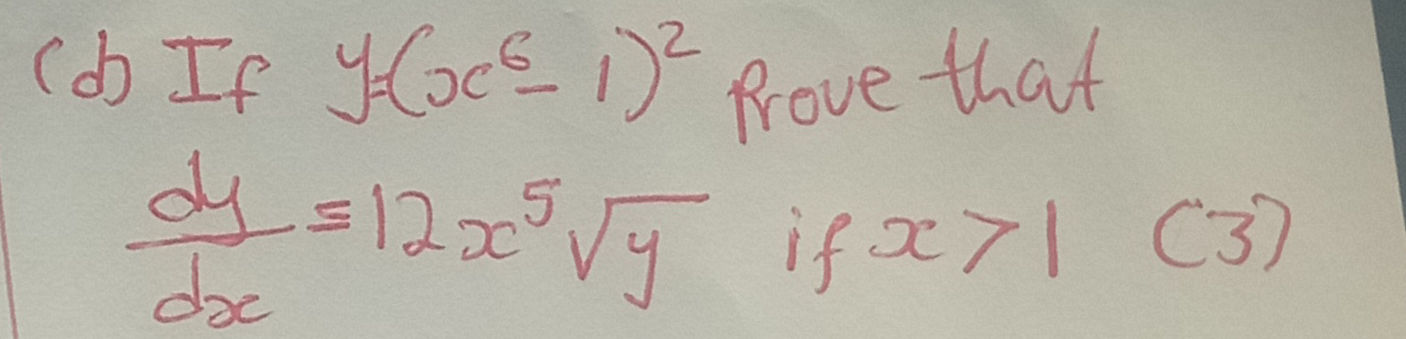 (d) If y=(x⁶-1)² Prove that
dy/dx = 12x⁵√y if x>1 (3)